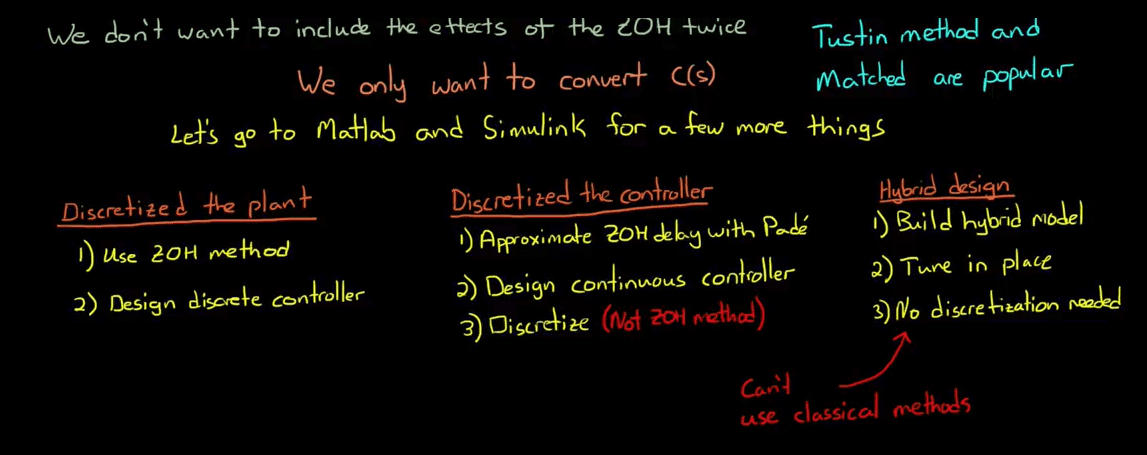 We don't want to include the effects of the ZOH twice
Tustin method and
Matched are popular
We only want to convert C(s)
Let's go to Matlab and Simulink for a few more things
Discretized the plant
1) Use ZOH method
2) Design discrete controller
Discretized the controller
1) Approximate ZOH delay with Padé
2) Design continuous controller
3) Discretize (Not ZOH method)
Hybrid design
1) Build hybrid model
2) Tune in place
3) No discretization needed
Can't
use classical methods